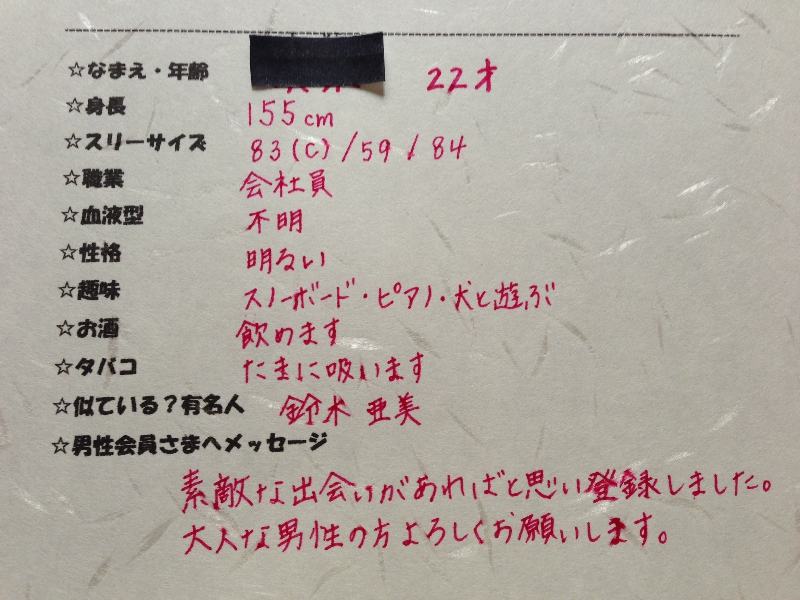 ☆なまえ・年齢 22才
☆身長 155cm
☆スリーサイズ 83(C)/59/84
☆職業 会社員
☆血液型 不明
☆性格 明るい
☆趣味 スノーボード・ピアノ・犬と遊ぶ
☆お酒 飲めます
☆タバコ たまに吸います
☆似ている?有名人 鈴木 亜美
☆男性会員さまへメッセージ
素敵な出会いがあればと思い登録しました。
大人な男性の方よろしくお願いします。